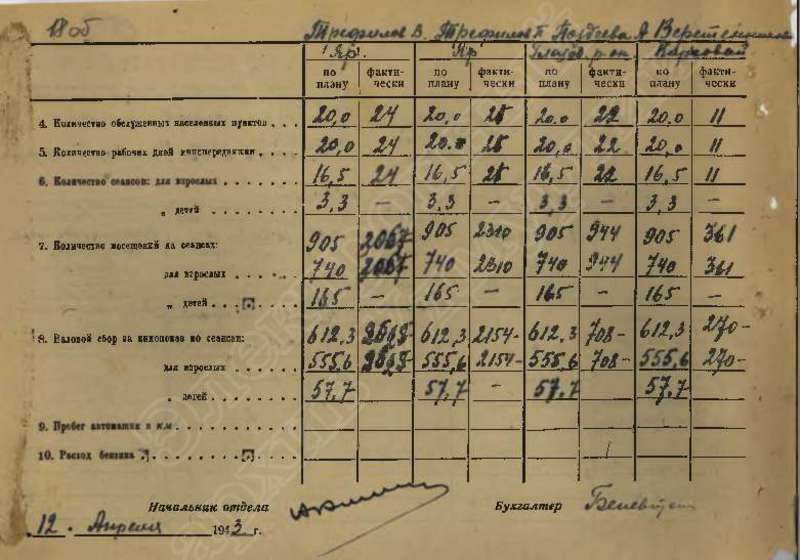 18об
Трефилов В. Трефилов П Поздеева А Верет
Яр. Яр Глазов. р-он.
по плану факти-чески по плану факти-чески по плану факти-чески по плану факти-чески
4. Количество обслуженных населенных пунктов . . . 20,0 24 20,0 28 20,0 22 20,0 11
5. Количество рабочих дней кинопередвижки . . . . 20,0 24 20,0 28 20,0 22 20,0 11
6. Количество сеансов: для взрослых . . . . . . . 16,5 24 16,5 28 16,5 22 16,5 11
„ детей . . . . . . . . 3,3 — 3,3 — 3,3 — 3,3 —
7. Количество посещений на сеансах: 905 2067 905 2310 905 944 905 361
для взрослых . . . . . . 740 2067 740 2310 740 944 740 361
„ детей . . . . . 165 — 165 — 165 — 165 —
8. Валовой сбор за кинопоказ по сеансам: 612,3 612,3 2154- 612,3 708- 612,3 270-
для взрослых . . . . . . 555,6 555,6 2154- 555,6 708- 555,6 270-
„ детей . . . . . . . . 57,7 57,7 - 57,7 57,7
9. Пробег автомашин в км . . . . . . . . . . .
10. Расход бензина . . . . . . . . . .
Начальник отдела Бухгалтер
12. Апреля 1943 г.